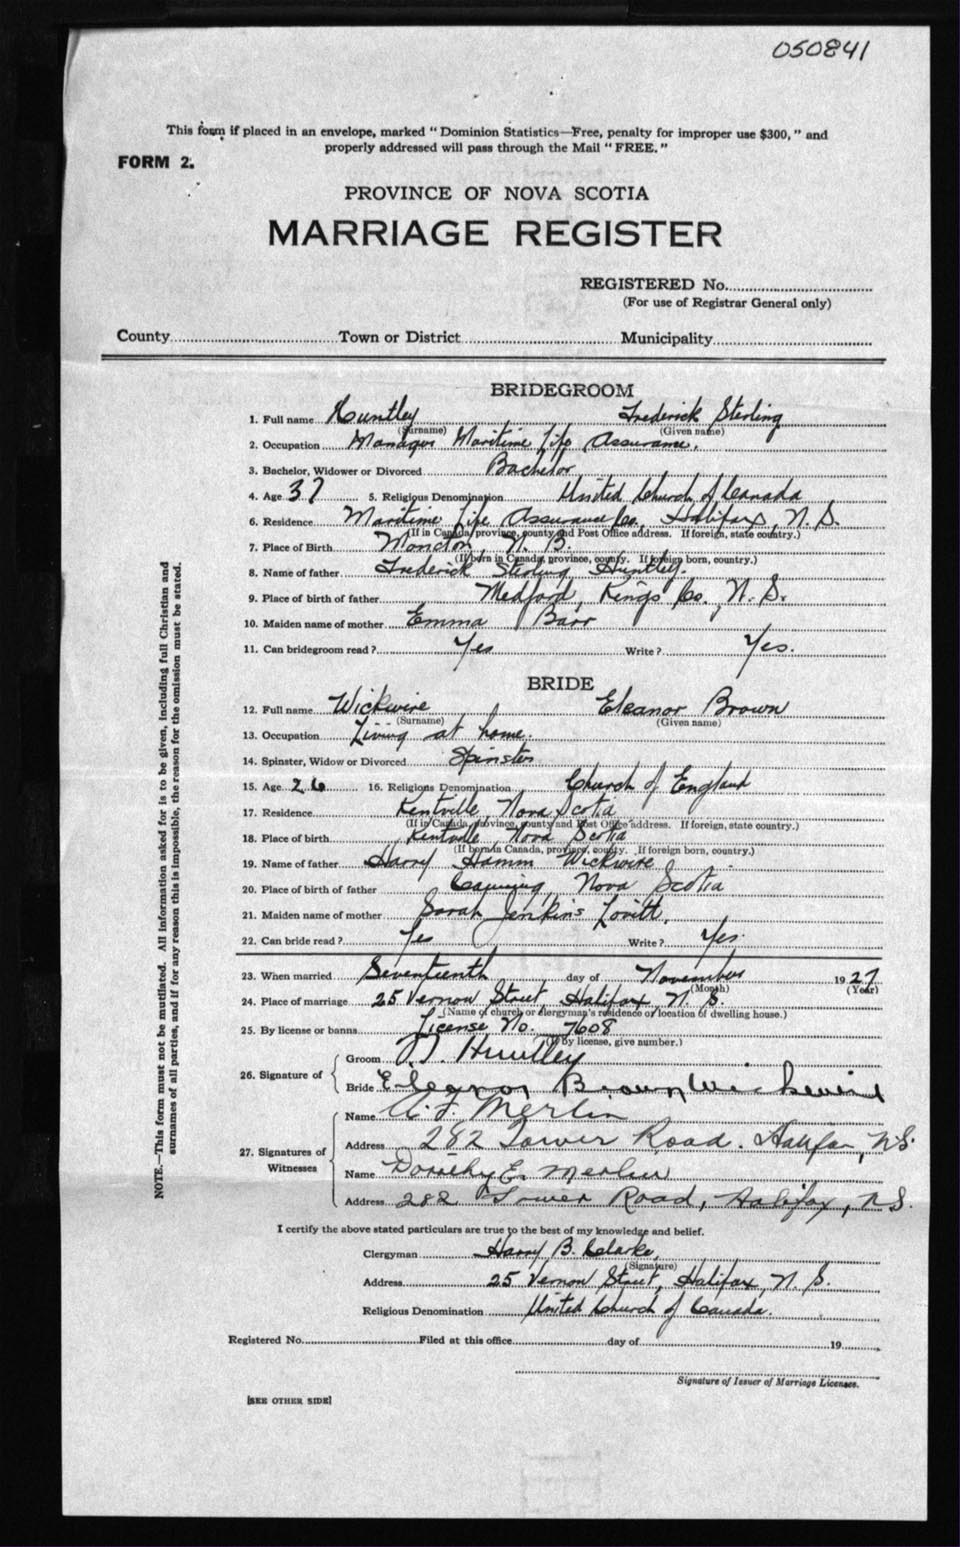 050841
This form if placed in an envelope, marked "Dominion Statistics—Free, penalty for improper use $300," and
properly addressed will pass through the Mail "FREE."
FORM 2.
PROVINCE OF NOVA SCOTIA
MARRIAGE REGISTER
REGISTERED No.
(For use of Registrar General only)
County Town or District Municipality
BRIDEGROOM
1. Full name Huntley Frederick Sterling
(Surname) (Given name)
2. Occupation Manager Maritime Life Assurance.
3. Bachelor, Widower or Divorced Bachelor
4. Age 37 5. Religious Denomination United Church of Canada
6. Residence Maritime Life Assurance Co., Halifax, N. S.
(If in Canada, province, county and Post Office address. If foreign, state country.)
7. Place of Birth Moncton N. B.
(If born in Canada, province, county. If foreign born, country.)
8. Name of father Frederick Sterling Huntley
9. Place of birth of father Medford, Kings Co., N. S.
10. Maiden name of mother Emma Barr
11. Can bridegroom read? Yes Write? Yes.
BRIDE
12. Full name Wickwire Eleanor Brown
(Surname) (Given name)
13. Occupation Living at home.
14. Spinster, Widow or Divorced Spinster
15. Age 26 16. Religious Denomination Church of England
17. Residence Kentville, Nova Scotia
(If in Canada, province, county and Post Office address. If foreign, state country.)
18. Place of birth Kentville, Nova Scotia
(If born in Canada, province, county. If foreign born, country.)
19. Name of father Harry Hamm Wickwire
20. Place of birth of father Canning, Nova Scotia
21. Maiden name of mother Sarah Jenkins Lovitt.
22. Can bride read? Yes Write? Yes.
23. When married Seventeenth day of November 1927
(Month) (Year)
24. Place of marriage 25 Vernon Street, Halifax, N. S.
(Name of church or clergyman's residence or location of dwelling house.)
25. By license or banns License No. 7608
(If by license, give number.)
26. Signature of
Groom Huntley
Bride Eleanor Brown Wickwire
27. Signatures of Witnesses
Name Merlin
Address 282 Tower Road. Halifax, N.S.
Name Dorothy E. Merlin
Address 282 Tower Road, Halifax, N.S.
I certify the above stated particulars are true to the best of my knowledge and belief.
Clergyman Harry B. Clarke,
(Signature)
Address 25 Vernon Street, Halifax, N. S.
Religious Denomination United Church of Canada.
Registered No. Filed at this office day of 19
Signature of Issuer of Marriage Licenses.
[SEE OTHER SIDE]
NOTE.—This form must not be mutilated. All information asked for is to be given, including full Christian and
surnames of all parties, and if for any reason this is impossible, the reason for the omission must be stated.